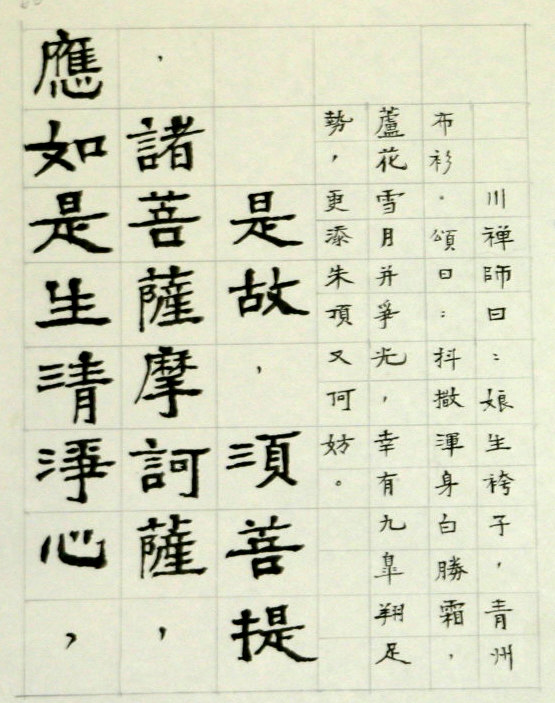 川禪師曰：娘生袴子，青州
布衫。頌曰：抖擻渾身白勝霜，
蘆花雪月并爭光，幸有九臯翔足
勢，更添朱頂又何妨。
是故，須菩提
，諸菩薩摩訶薩，
應如是生清淨心，